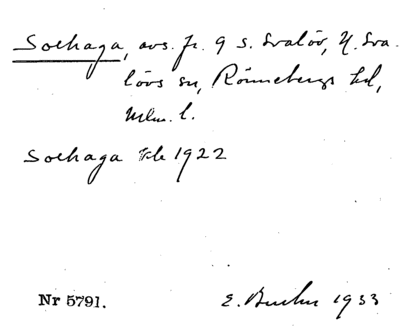 Solhaga, avs. fr. 9 s. Svalöv, N. Sva-
lövs sn, Rönnebergs hd,
Mlm. l.
Solhaga 1922
Nr 5791.
E. 1933